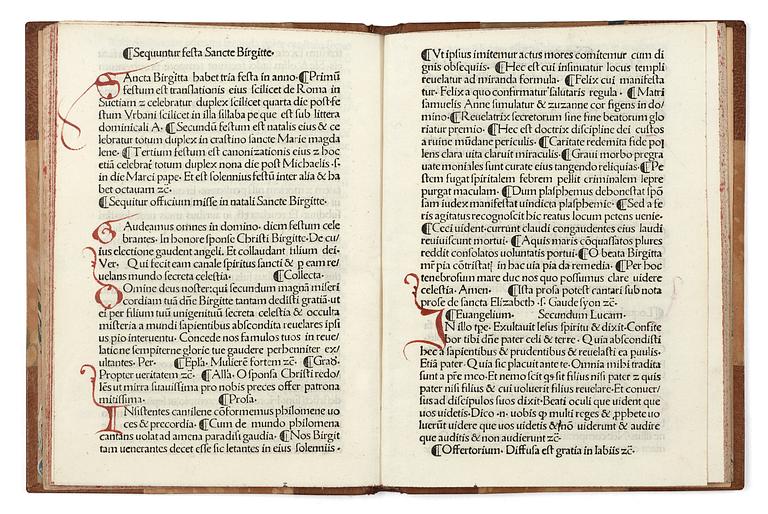 ¶Sequuntur festa Sancte Birgitte·
SAncta Birgitta habet tria festa in anno·¶Primū
festum est translationis eius scilicet de Roma in
Suetiam ⁊ celebratur duplex scilicet quarta die post fe
stum Vrbani scilicet in illa sillaba pe que est sub littera
dominicali A· ¶Secundū festum est natalis eius & ce
lebratur totum duplex in crastino sancte Marie magda
lene·¶Tertium festum est canonizationis eius ⁊ hoc
etiā celebrat̄ totum duplex nona die post Michaelis ·s·
in die Marci pape· Et est solennius festū inter alia & ha
bet octauam ⁊c̄·
¶Sequitur officium misse in natali Sancte Birgitte·
GAudeamus omnes in domino· diem festum cele
brantes· In honore sponse Christi Birgitte·De cu/
ius electione gaudent angeli· Et collaudant filium dei·
Ver· Qui fecit eam canale spiritus sancti & p eam re/
uelans mundo secreta celestia· ¶Collecta·
OOmine deus noster:qui secundum magnā miseri
cordiam tuā dn̄e Birgitte tantam dedisti gratiā·ut
ei per filium tuū unigenituū secreta celestia & occulta
misteria a mundi sapientibus abscondita reuelares ipsi
us pio interuentu· Concede nos famulos tuos in reue/
latione sempiterne glorie tue gaudere perhenniter ex/
ultantes· Per· ¶Ep̄la· Mulierē fortem ⁊c̄· ¶Grad̄·
Propter ueritatem ⁊c̄· ¶All'a· O sponsa Christi redo/
lēs ut mirra suauissima pro nobis preces offer patrona
mitissima· ¶Prosa·
INsistentes cantilene cōformemus philomene uo
ces & precordia· ¶Cum de mundo philomena
cantans uolat ad amena paradisi gaudia· ¶Nos Birgit
tam uenerantes decet esse sic letantes in eius solenniis·
¶Vt ipsius imitemur actus mores comitemur cum di
gnis obsequiis· ¶Hec est cui insinuatur locus templi
reuelatur ad miranda formula· ¶Felix cui manifesta
tur· Felix a quo confirmatur salutaris regula· ¶Matri
samuelis Anne simulatur & zuzanne cor figens in do/
mino·¶Reuelatrix secretorum sine fine beatorum glo
riatur premio·¶Hec est doctrix discipline dei custos
a ruine mūdane periculis· ¶Caritate redemita fide pol
lens clara uita claruit miraculis·¶Graui morbo pregra
uate moniales sunt curate eius tangendo reliquias·¶Pe
stem fugat spiritalem febrem pellit criminalem lepre
purgat maculam· ¶Dum plasphemus dehonestat spō
sam iudex manifestat uindicta plasphemie· ¶Sed a fe
ris agitatus recognoscit hic reatus locum petens uenie·
¶Ceci uident·currunt claudi congaudentes eius laudi
reuiuiscunt mortui· ¶Aquis maris cōquassatos plures
reddit consolatos uoluntatis portui· ¶O beata Birgitta
mr̄ pia cōtristat̄ in hac uia pia da remedia· ¶Per hoc
tenebrosum mare duc nos quo possumus clare uidere
celestia· Amen· ¶Ista prosa potest cantari sub nota
prose de sancta Elizabeth ·s· Gaude syon ⁊c̄·
¶Euangelium· Secundum Lucam·
IN illo tp̄e· Exultauit Iesus spiritu & dixit·Confite
bor tibi dn̄e pater celi & terre· Quia abscondisti
hec a sapientibus & prudentibus & reuelasti ea puulis·
Etiā pater· Quia sic placuit ante te·Omnia mihi tradita
sunt a pr̄e meo·Et nemo scit q̄s sit filius nisi pater ⁊ quis
pater nisi filius & cui uoluerit filius reuelare·Et conuer/
sus ad discipulos suos dixit·Beati oculi que uident que
uos uidetis·Dico·n· uobis q multi reges & pphete uo
luerūt uidere que uos uidetis & nō uiderunt & audire
que auditis & non audierunt ⁊c̄·
¶Offertorium· Diffusa est gratia in labiis ⁊c̄·